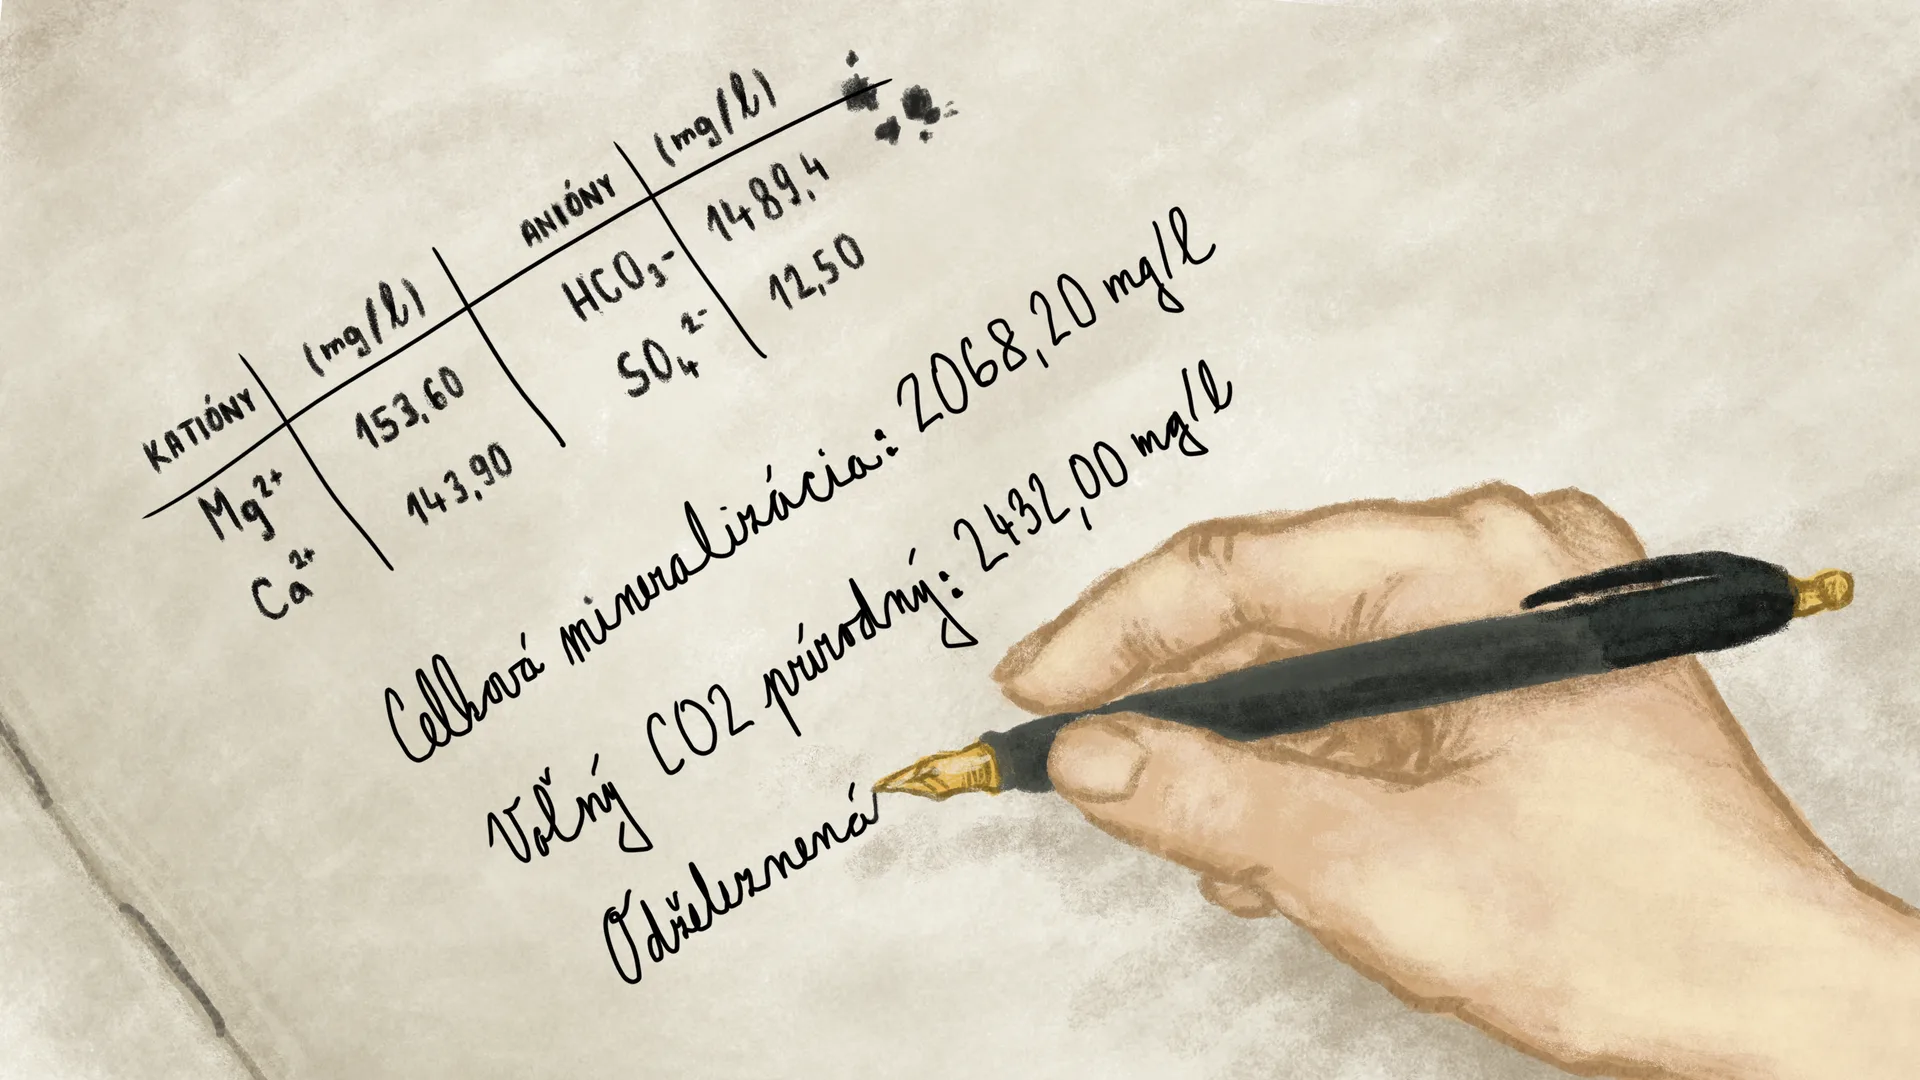 KATIÓNY (mg/l) ANIÓNY (mg/l)
Mg²⁺ 153,60 HCO₃⁻ 1489,4
Ca²⁺ 143,90 SO₄²⁻ 12,50
Celková mineralizácia: 2068,20 mg/l
Voľný CO2 prírodný: 2432,00 mg/l
Odželeznená